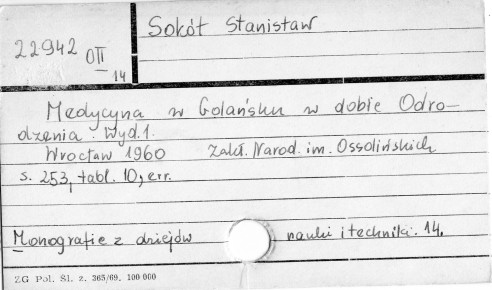 Sokół Stanisław
22942 OII
14
Medycyna w Gdańsku w dobie Odro-
dzenia. Wyd.1.
Wrocław 1960 Zakł. Narod. im. Ossolińskich
s. 253, tabl. 10, err.
Monografie z dziejów nauki i techniki. 14.
ZG Pol. Śl. z. 365/69. 100 000